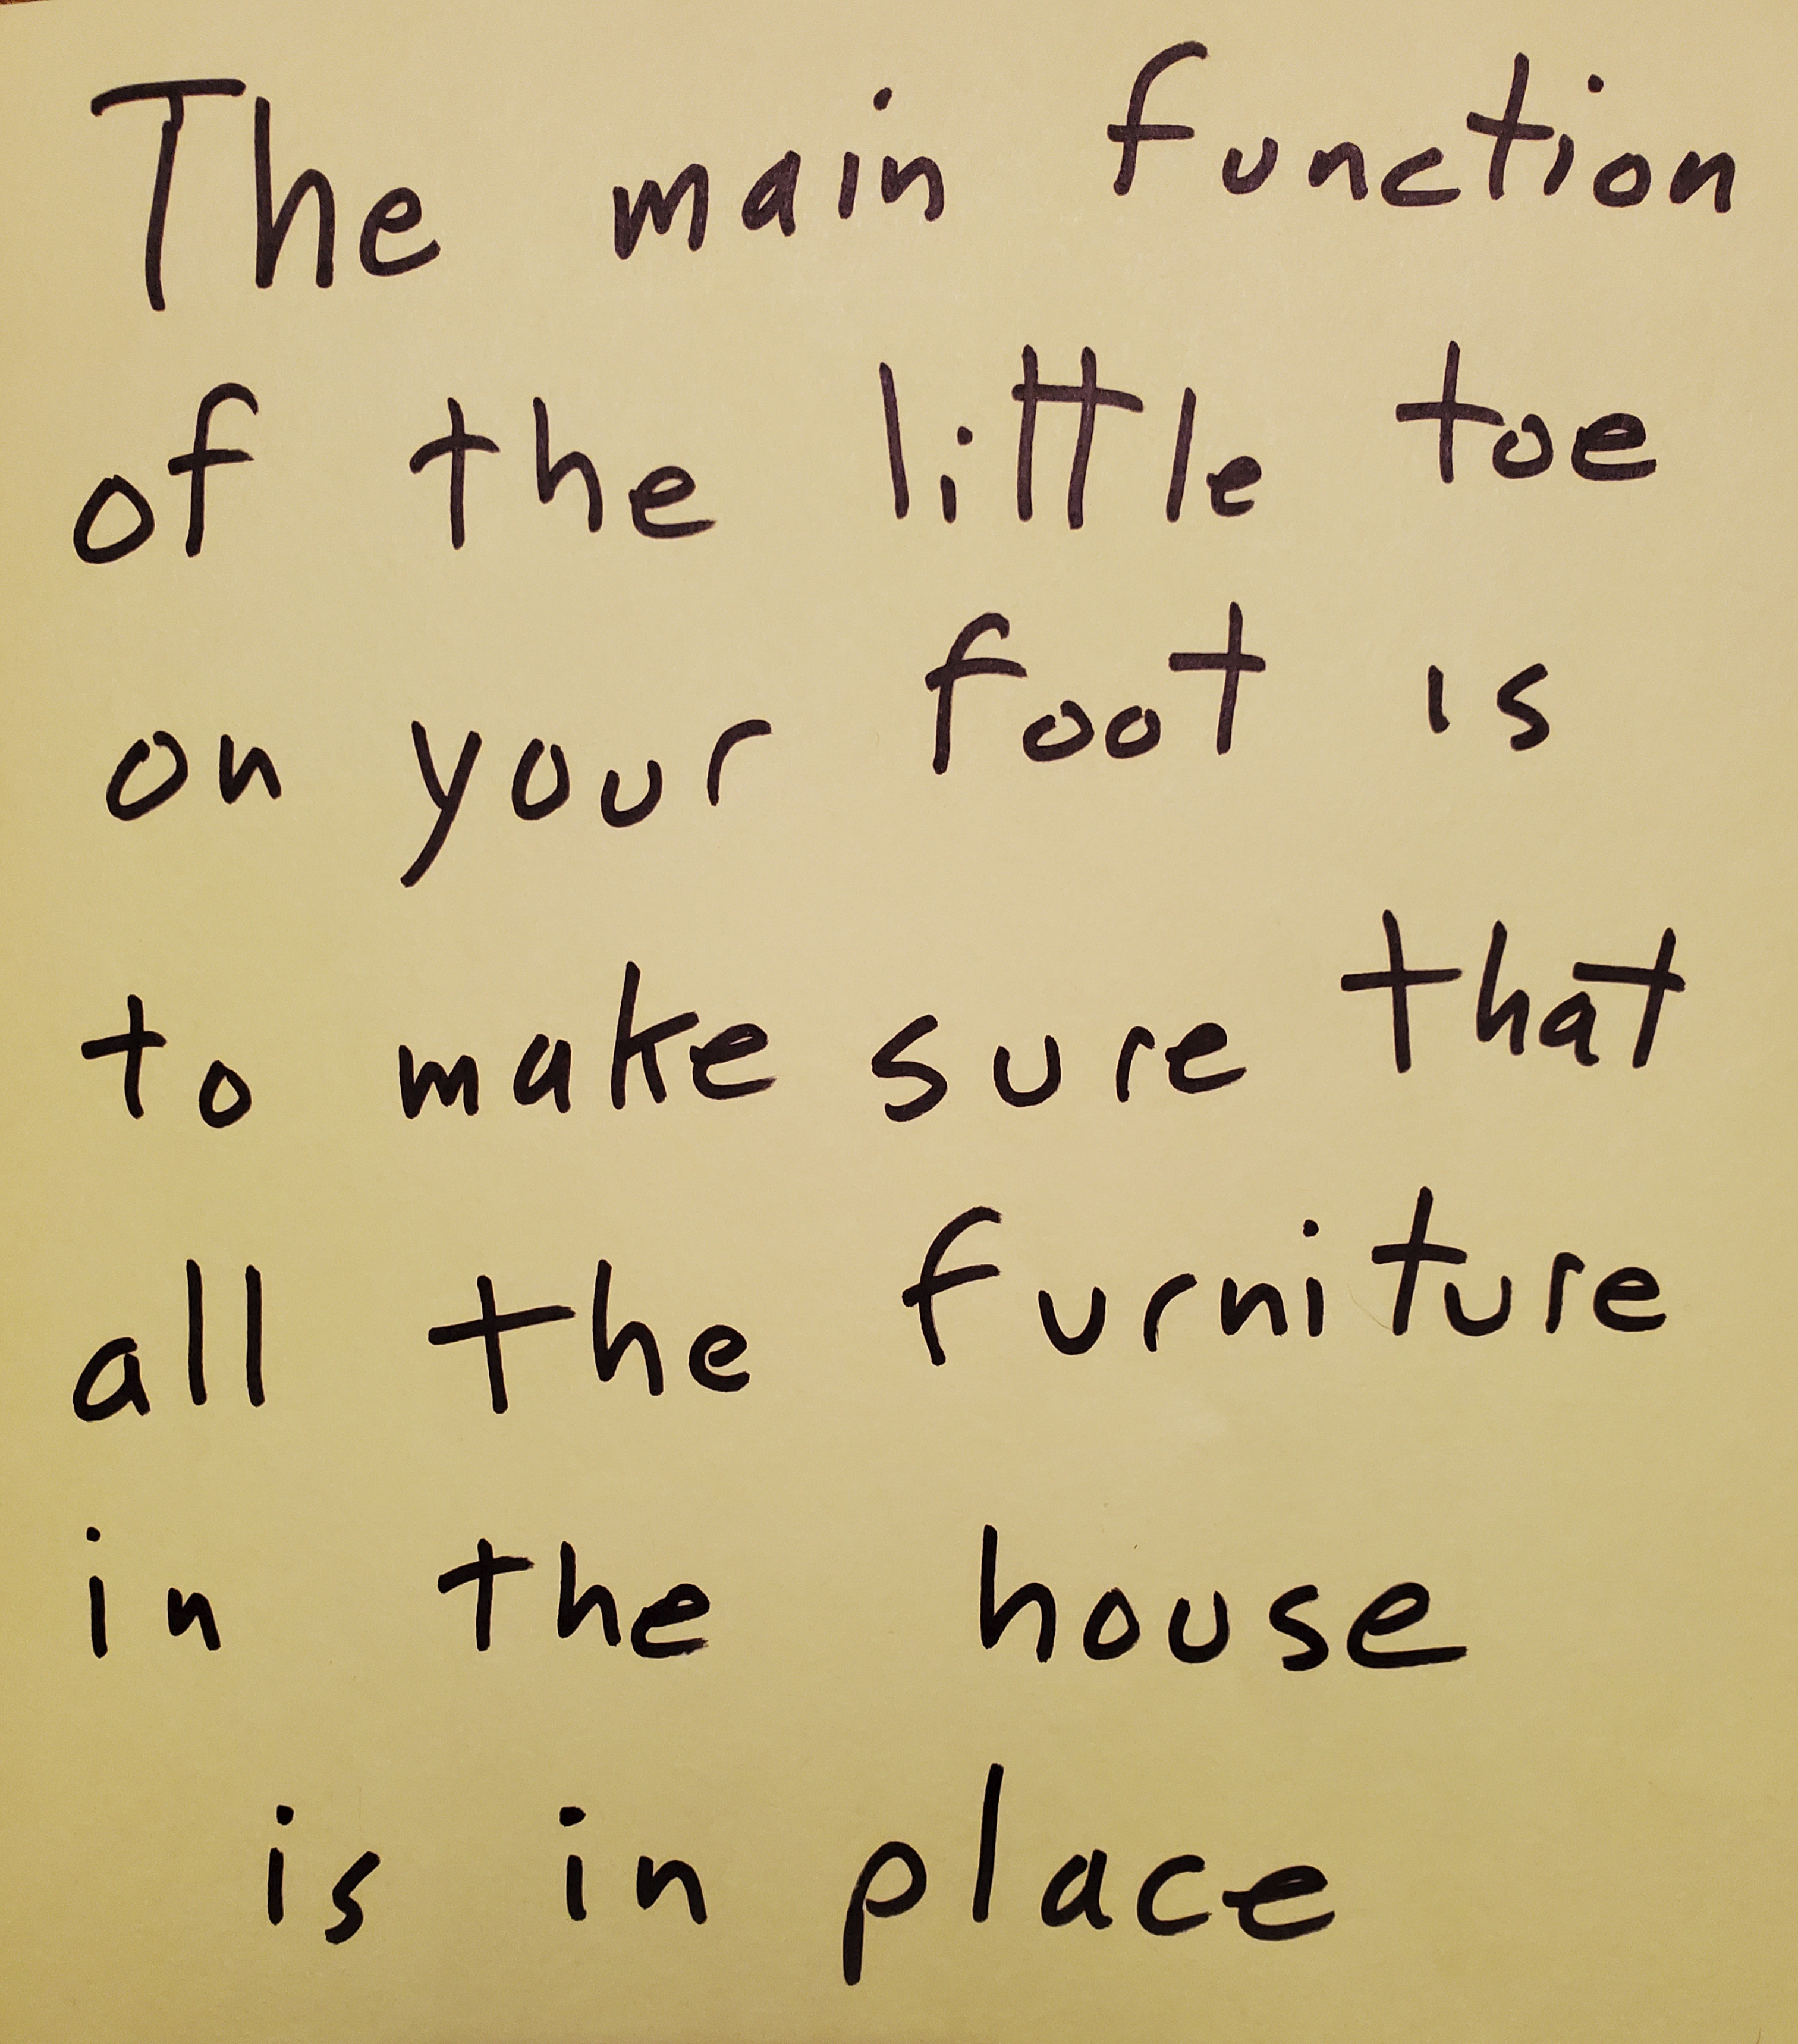 The main function
of the little toe
on your foot is
to make sure that
all the furniture
in the house
is in place